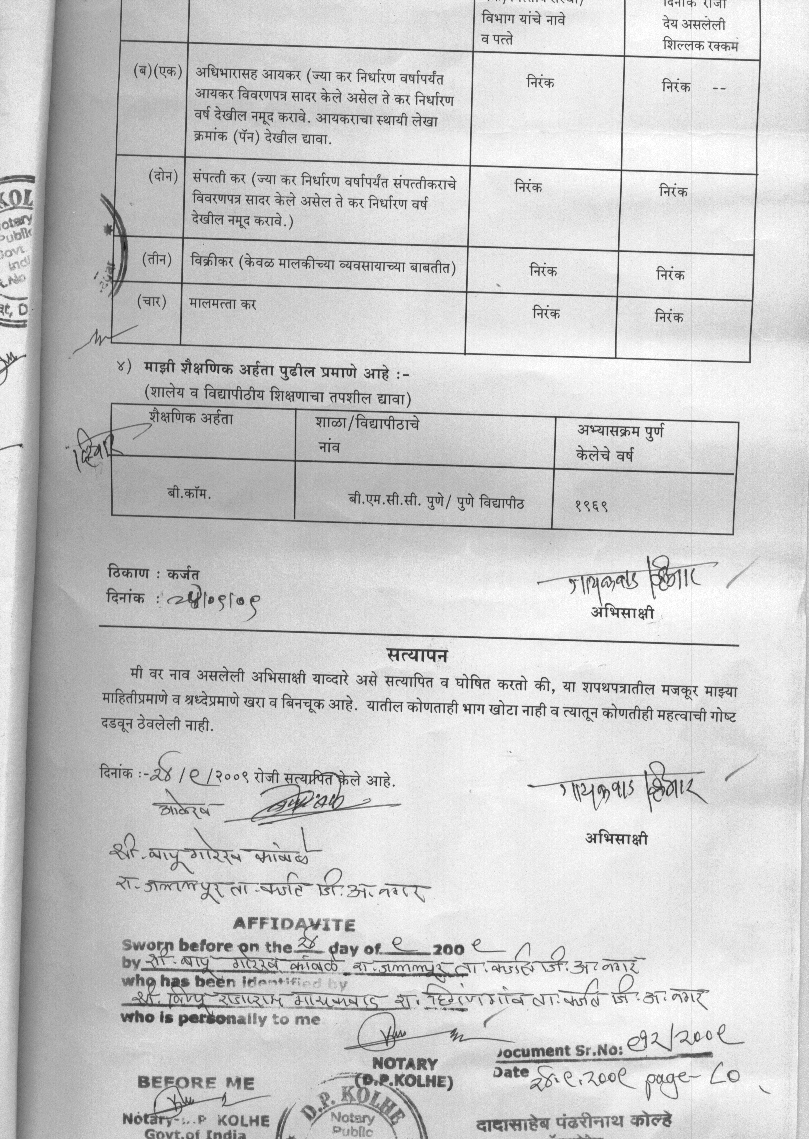 विभाग यांचे नावे
व पत्ते
दिनांक रोजी
देय असलेली
शिल्लक रक्कम
(ब)(एक) अधिभारासह आयकर (ज्या कर निर्धारण वर्षापर्यंत
आयकर विवरणपत्र सादर केले असेल ते कर निर्धारण
वर्ष देखील नमूद करावे. आयकराचा स्थायी लेखा
क्रमांक (पॅन) देखील द्यावा.
निरंक
निरंक --
(दोन) संपत्ती कर (ज्या कर निर्धारण वर्षापर्यंत संपत्तीकराचे
विवरणपत्र सादर केले असेल ते कर निर्धारण वर्ष
देखील नमूद करावे.)
निरंक
निरंक
(तीन) विक्रीकर (केवळ मालकीच्या व्यवसायाच्या बाबतीत) निरंक निरंक
(चार) मालमत्ता कर निरंक निरंक
४) माझी शैक्षणिक अर्हता पुढील प्रमाणे आहे :-
(शालेय व विद्यापीठीय शिक्षणाचा तपशील द्यावा)
शैक्षणिक अर्हता
शाळा/विद्यापीठाचे
नांव
अभ्यासक्रम पुर्ण
केलेचे वर्ष
बी.कॉम. बी.एम.सी.सी. पुणे/ पुणे विद्यापीठ १९६९
ठिकाण : कर्जत
दिनांक :
अभिसाक्षी
सत्यापन
मी वर नाव असलेली अभिसाक्षी याव्दारे असे सत्यापित व घोषित करतो की, या शपथपत्रातील मजकूर माझ्या
माहितीप्रमाणे व श्रध्देप्रमाणे खरा व बिनचूक आहे. यातील कोणताही भाग खोटा नाही व त्यातून कोणतीही महत्वाची गोष्ट
दडवून ठेवलेली नाही.
दिनांक :-२४/९/२००९ रोजी सत्यापित केले आहे.
अभिसाक्षी
श्री. बापू गोरख कांबळे
रा. जलालपूर ता. कर्जत जि. अ. नगर
AFFIDAVITE
Sworn before on the २४ day of ९ 200 ९
by श्री. बापू गोरख कांबळे रा. जलालपूर ता. कर्जत जि. अ. नगर
who has been identified by
who is personally to me
NOTARY
(D.P.KOLHE)
Document Sr.No: /२००९
Date २४.९.२००९ page-
BEFORE ME
Notary P KOLHE
Govt.of India
D.P. KOLHE
Notary
Public
दादासाहेब पंढरीनाथ कोल्हे
KOL
Notary
Public
Govt
Indi